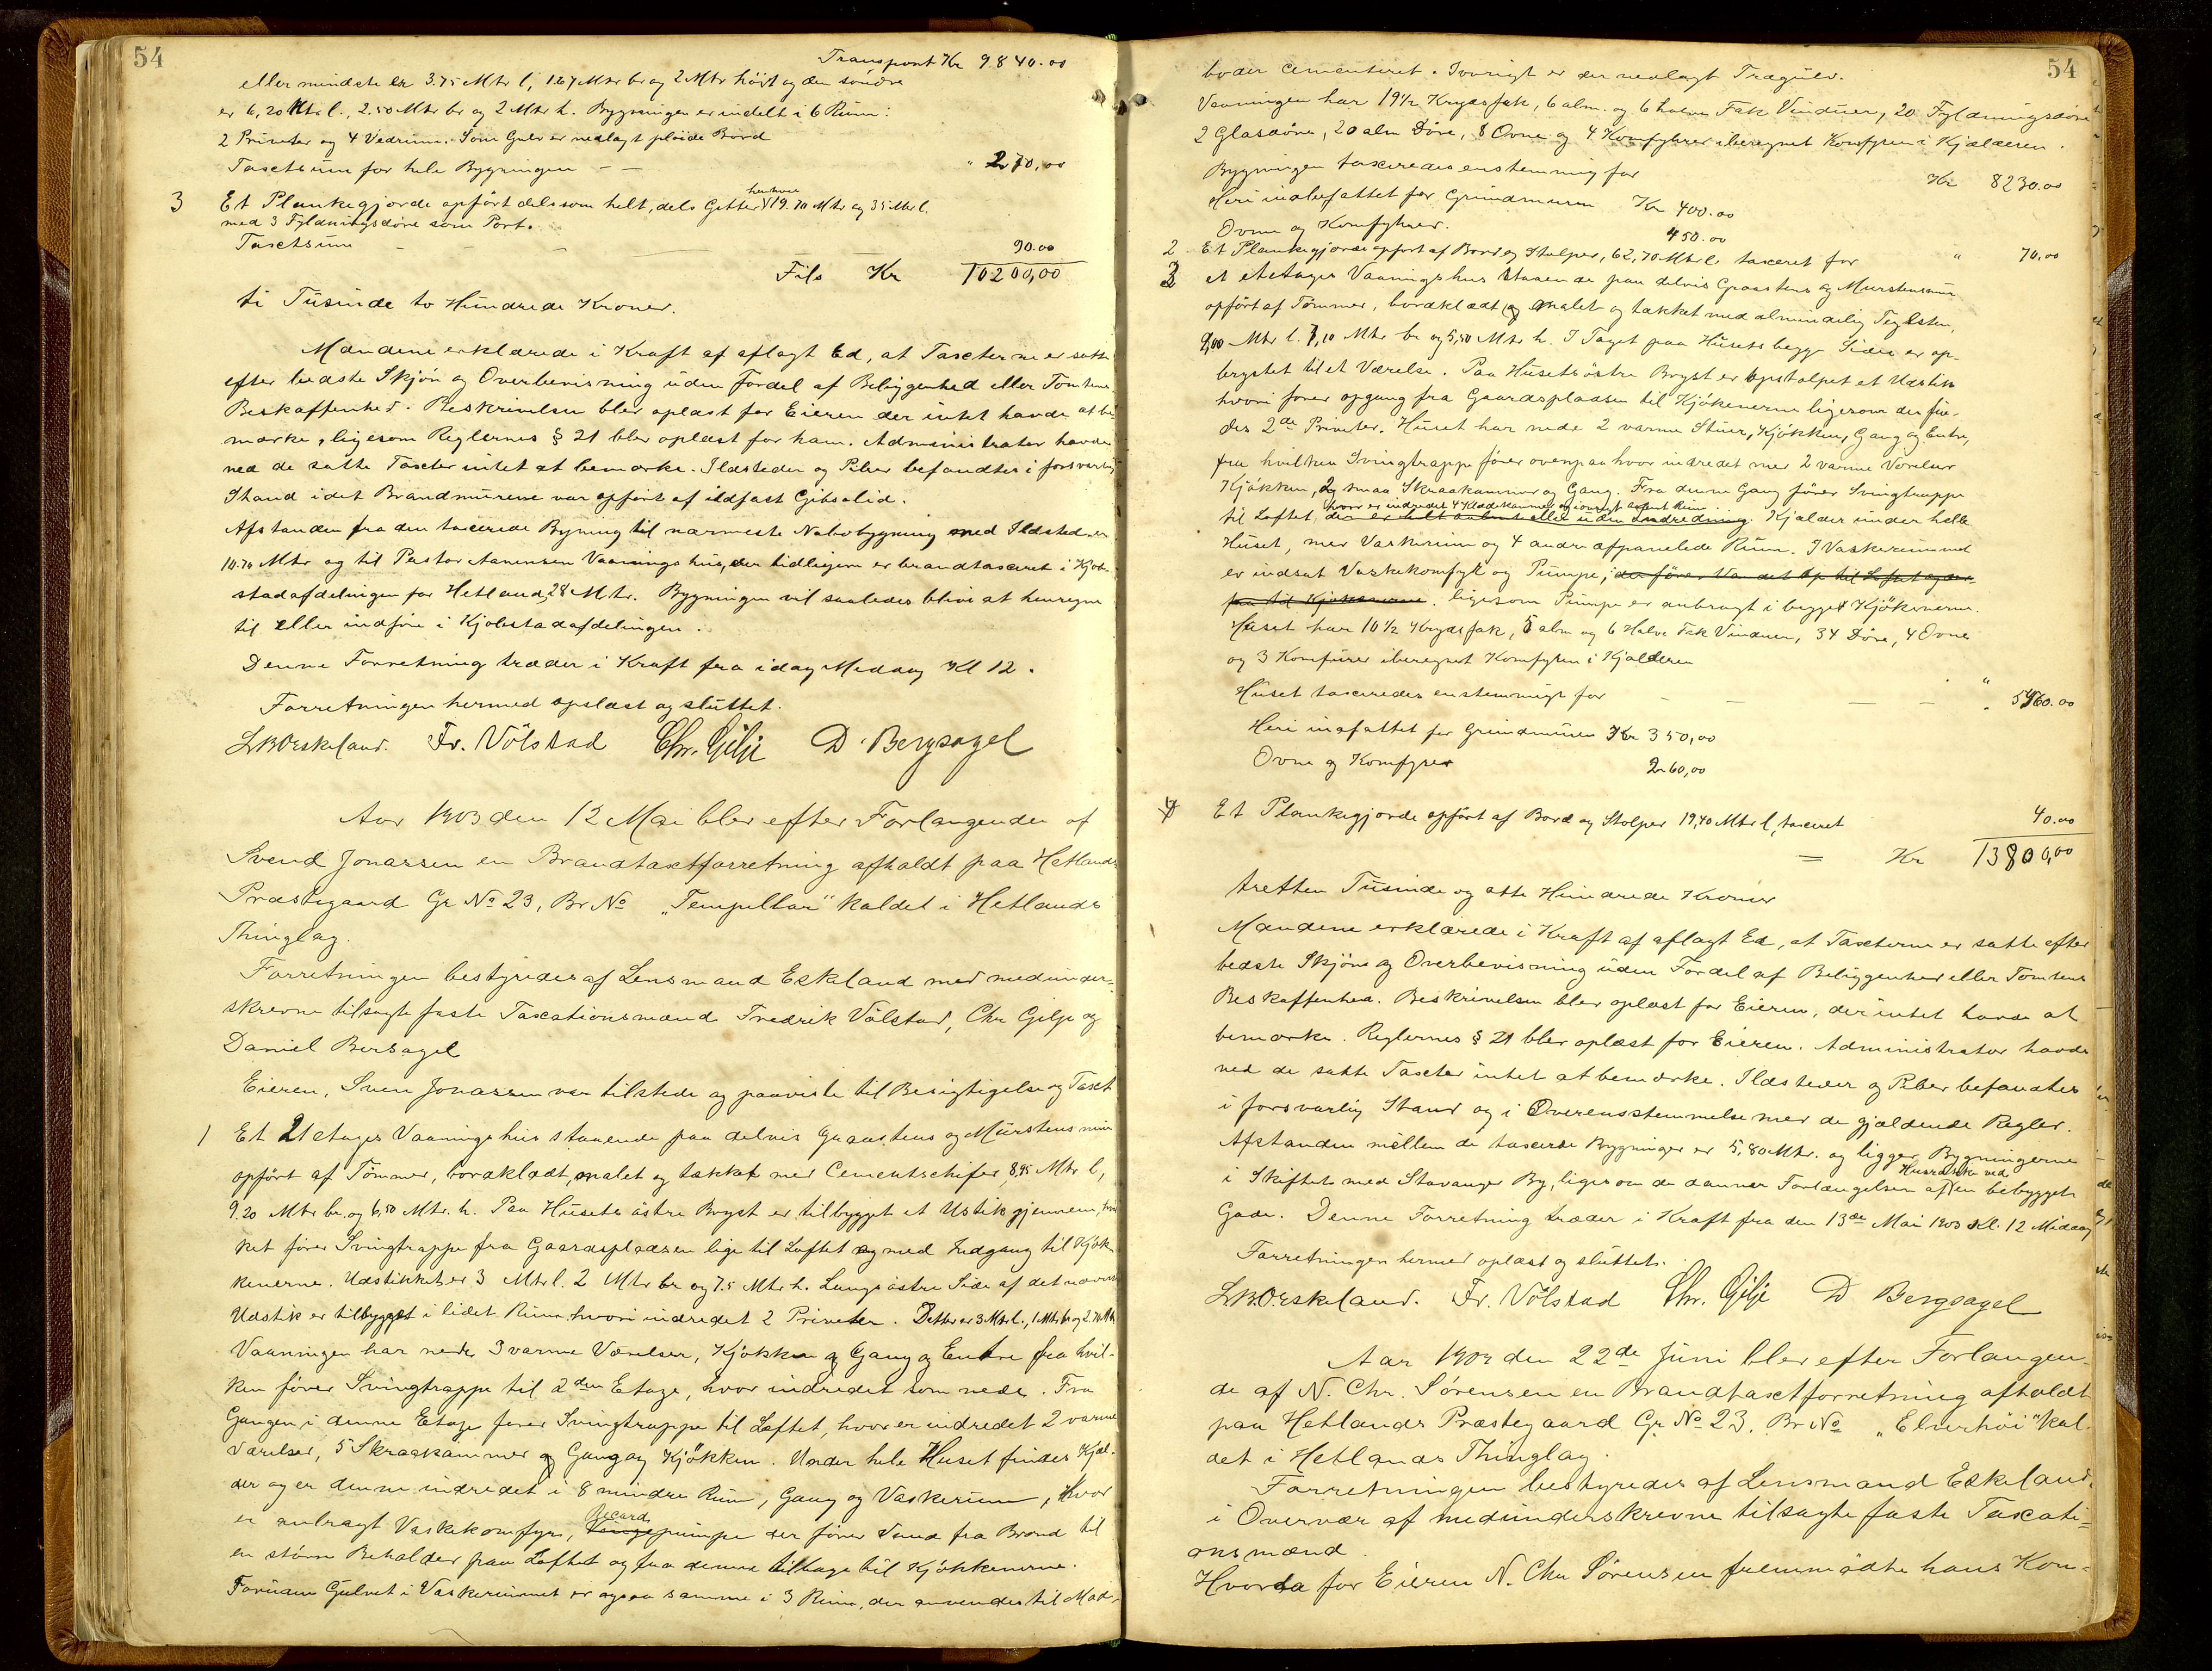 54
Transport Kr 9840.00
eller mindste er 3.75 Mtr l, 1.67 Mtr br og 2 Mtr höit og den söndre
er 6,20 Mtr l., 2.50 Mtr br og 2 Mtr h. Bygningen er indelt i 6 Rum:
2 Priveter og 4 Vedrum. Som Gulv er nedlagt plöide Bord
Taxtsum for hele Bygningen — — " 270,00
3 Et Plankegjærde opfört dels som helt, dels Gitter henhve 19.70 Mtr og 35 Mtr l.
med 3 Fyldningsdöre som Port.
Taxtsum — — — 90.00
Kr 10200,00
ti Tusinde to Hundrede Kroner.
Mændene erklærede i Kraft af aflagt Ed, at Taxterne er satte
efter bedste Skjön og Overbevisning uden Fordel af Beliggenhed eller Tomtens
Beskaffenhed. Beskrivelsen blev oplæst for Eieren der intet havde at be
mærke, ligesom Reglernes § 21 blev oplæst for ham. Administrator havde
ved de satte Taxter intet at bemærke. Ildsteder og Piber befandtes i forsvarlig
Stand idet Brandmurene var opfört af ildfast Gibsolid.
Afstanden fra den taxerede Bygning til nærmeste Nabobygning med Ildsted er
10.70 Mtr og til Pastor Aanensen Vaaningshus, der tidligere er brandtaxeret i Kjöb-
stadafdelingen for Hetland, 28 Mtr. Bygningen vil saaledes blive at henregne
til eller indföre i Kjöbstadafdelingen.
Denne Forretning træder i Kraft fra idag Middag Kl 12.
Forretningen hermed oplæst og sluttet.
L.B.Oeskeland. Fr. Völstad Chr. Gilje D. Bergsagel
Aar 1903 den 12 Mai blev efter Forlangende af
Svend Jonassen en Brandtaxtforretning afholdt paa Hetlands
Præstegaard Gr No 23, Br No „Tempellar" kaldet i Hetlands
Thinglag.
Forretningen bestyredes af Lensmand Eskeland med medunder-
skrevne tilsagte faste Taxationsmænd Fredrik Völstad, Chr Gilje og
Daniel Bersagel
Eieren, Sven Jonassen var tilstede og paaviste til Besigtigelse og Taxt
1 Et 2 etages Vaaningshus staaende paa delvis Graastens og Murstens mur
opfört af Tömmer, bordklædt, malet og tækket med Cementschifer, 8,95 Mtr l,
9.20 Mtr br. og 6,50 Mtr. h. Paa Husets östre Bryst er tilbygget et Ustik gjennem, hvil
ket förer Svingtrappe fra Gaardspladsen lige til Loftet og med Indgang til Kjök-
kenerne. Udstikket er 3 Mtr l. 2 Mtr br og 7.5 Mtr h. Langs östre Side af det nævnte
Udstik er tilbygget i lidet Rum hvori indredet 2 Priveter. Dette er 3 Mtr l., 1 Mtr br og 2.70 Mtr
Vaaningen har nede 3 varme Værelser, Kjökken og Gang og Entre fra hvil-
ken förer Svingtrappe til 2den Etage, hvor indredet som nede. Fra
Gangen i denne Etage förer Svingtrappe til Loftet, hvor er indredet 2 varme
Værelser, 5 Skraakammer og Gang og Kjökken. Under hele Huset findes Kjæl-
der og er denne indredet i 8 mindre Rum, Gang og Vaskerum, hvor
er anbragt Vaskekomfyr, pumpe der förer Vand fra Brönd til
en större Beholder paa Loftet og fra denne tilbage til Kjökkenerne.
Foruden Gulvet i Vaskerummet er ogsaa samme i 3 Rum, der anvendes til Mad-
54
boder cementeret. Iövrigt er der nedlagt Trægulv.
Vaaningen har 19½ Krydsfak, 6 alm. og 6 halve Fak Vinduer, 20 Fyldningsdöre
2 Glasdöre, 20 alm Döre, 8 Ovne og 4 Komfyrer iberegnet Komfyren i Kjælderen.
Bygningen taxeredes enstemmig for Kr 8230.00
Heri indbefattet for Grundmuren Kr 400.00
Ovne og Komfyrer. 450.00
2 Et Plankegjærde opfört af Bord og Stolper, 62,70 Mtr l. taxeret for " 70,00
3 et etetages Vaaningshus staaende paa delvis Graastens og Murstensmur
opfört af Tömmer, bordklædt og malet og tækket med almindelig Teglsten,
9,00 Mtr l. 7,10 Mtr br og 5,50 Mtr h. I Taget paa Husets begge Sider er op-
brystet til et Værelse. Paa Husets östre Bryst er opstolpet et Udstik
hvori förer opgang fra Gaardspladsen til Kjökenerne ligesom der fin-
des 2de Priveter. Huset har nede 2 varme Stuer, Kjökken, Gang og Entre,
fra hvilken Svingtrappe förer ovenpaa hvor indredet med 2 varme Værelser
Kjökken, 2 smaa Skraakammer og Gang. Fra denne Gang förer Svingtrappe
hvor er indredet 4 Klædekammer og iövrigt aabent Rum.
til Loftet der er helt aabent eller uden Indredning. Kjælder under hele
Huset, med Vaskerum og 4 andre afpanelede Rum. I Vaskerummet
er indsat Vaskekomfyr og Pumpe, der förer Vandet op til Loftet og der-
fra til Kjökkenerne. ligesom Pumpe er anbragt i begge Kjökenerne.
Huset har 10½ Krydsfak, 5 alm og 6 Halve Fak Vinduer, 34 Döre, 4 Ovne
og 3 Komfurer iberegnet Komfyren i Kjælderen
Huset taxeredes enstemmigt for — — — — " 5460.00
Heri inafattet for Grundmuren Kr 350,00
Ovne og Komfyrer 260,00
4 Et Plankegjærde opfört af Bord og Stolper 19,40 Mtr l, taxeret 40.00
= Kr 13800,00
tretten Tusinde og otte Hundrede Kroner
Mændene erklærede i Kraft af aflagt Ed, at Taxterne er satte efter
bedste Skjön og Overbevisning uden Fordel af Beliggenhed eller Tomtens
Beskaffenhed. Beskrivelsen blev oplæst for Eieren, der intet havde at
bemærke. Reglernes § 21 blev oplæst for Eieren. Administrator havde
ved de satte Taxter intet at bemærke. Ildsteder og Piber befandtes
i forsvarlig Stand og i Overensstemmelse med de gjældende Regler.
Afstanden mellem de taxerede Bygninger er 5,80 Mtr. og ligger Bygningerne
Husrække ved
i Skiftet med Stavanger By, ligesom de danner Forlængelsen af en bebygget
Gade. Denne Forretning træder i Kraft fra den 13de Mai 1903 Kl. 12 Middag
Forretningen hermed oplæst og sluttet.
L.B.Oeskeland. Fr. Völstad Chr. Gilje D Bergsagel
Aar 1903 den 22de Juni blev efter Forlangen-
de af N. Chr. Sörensen en Brandtaxtforretning afholdt
paa Hetlands Præstegaard Gr No 23, Br No „Elverhöi" kal-
det i Hetlands Thinglag.
Forretningen bestyredes af Lensmand Eskeland.
i Overvær af medunderskrevne tilsagte faste Taxati=
onsmænd.
Hvorda for Eieren N. Chr Sörensen fremmödte hans Kon=